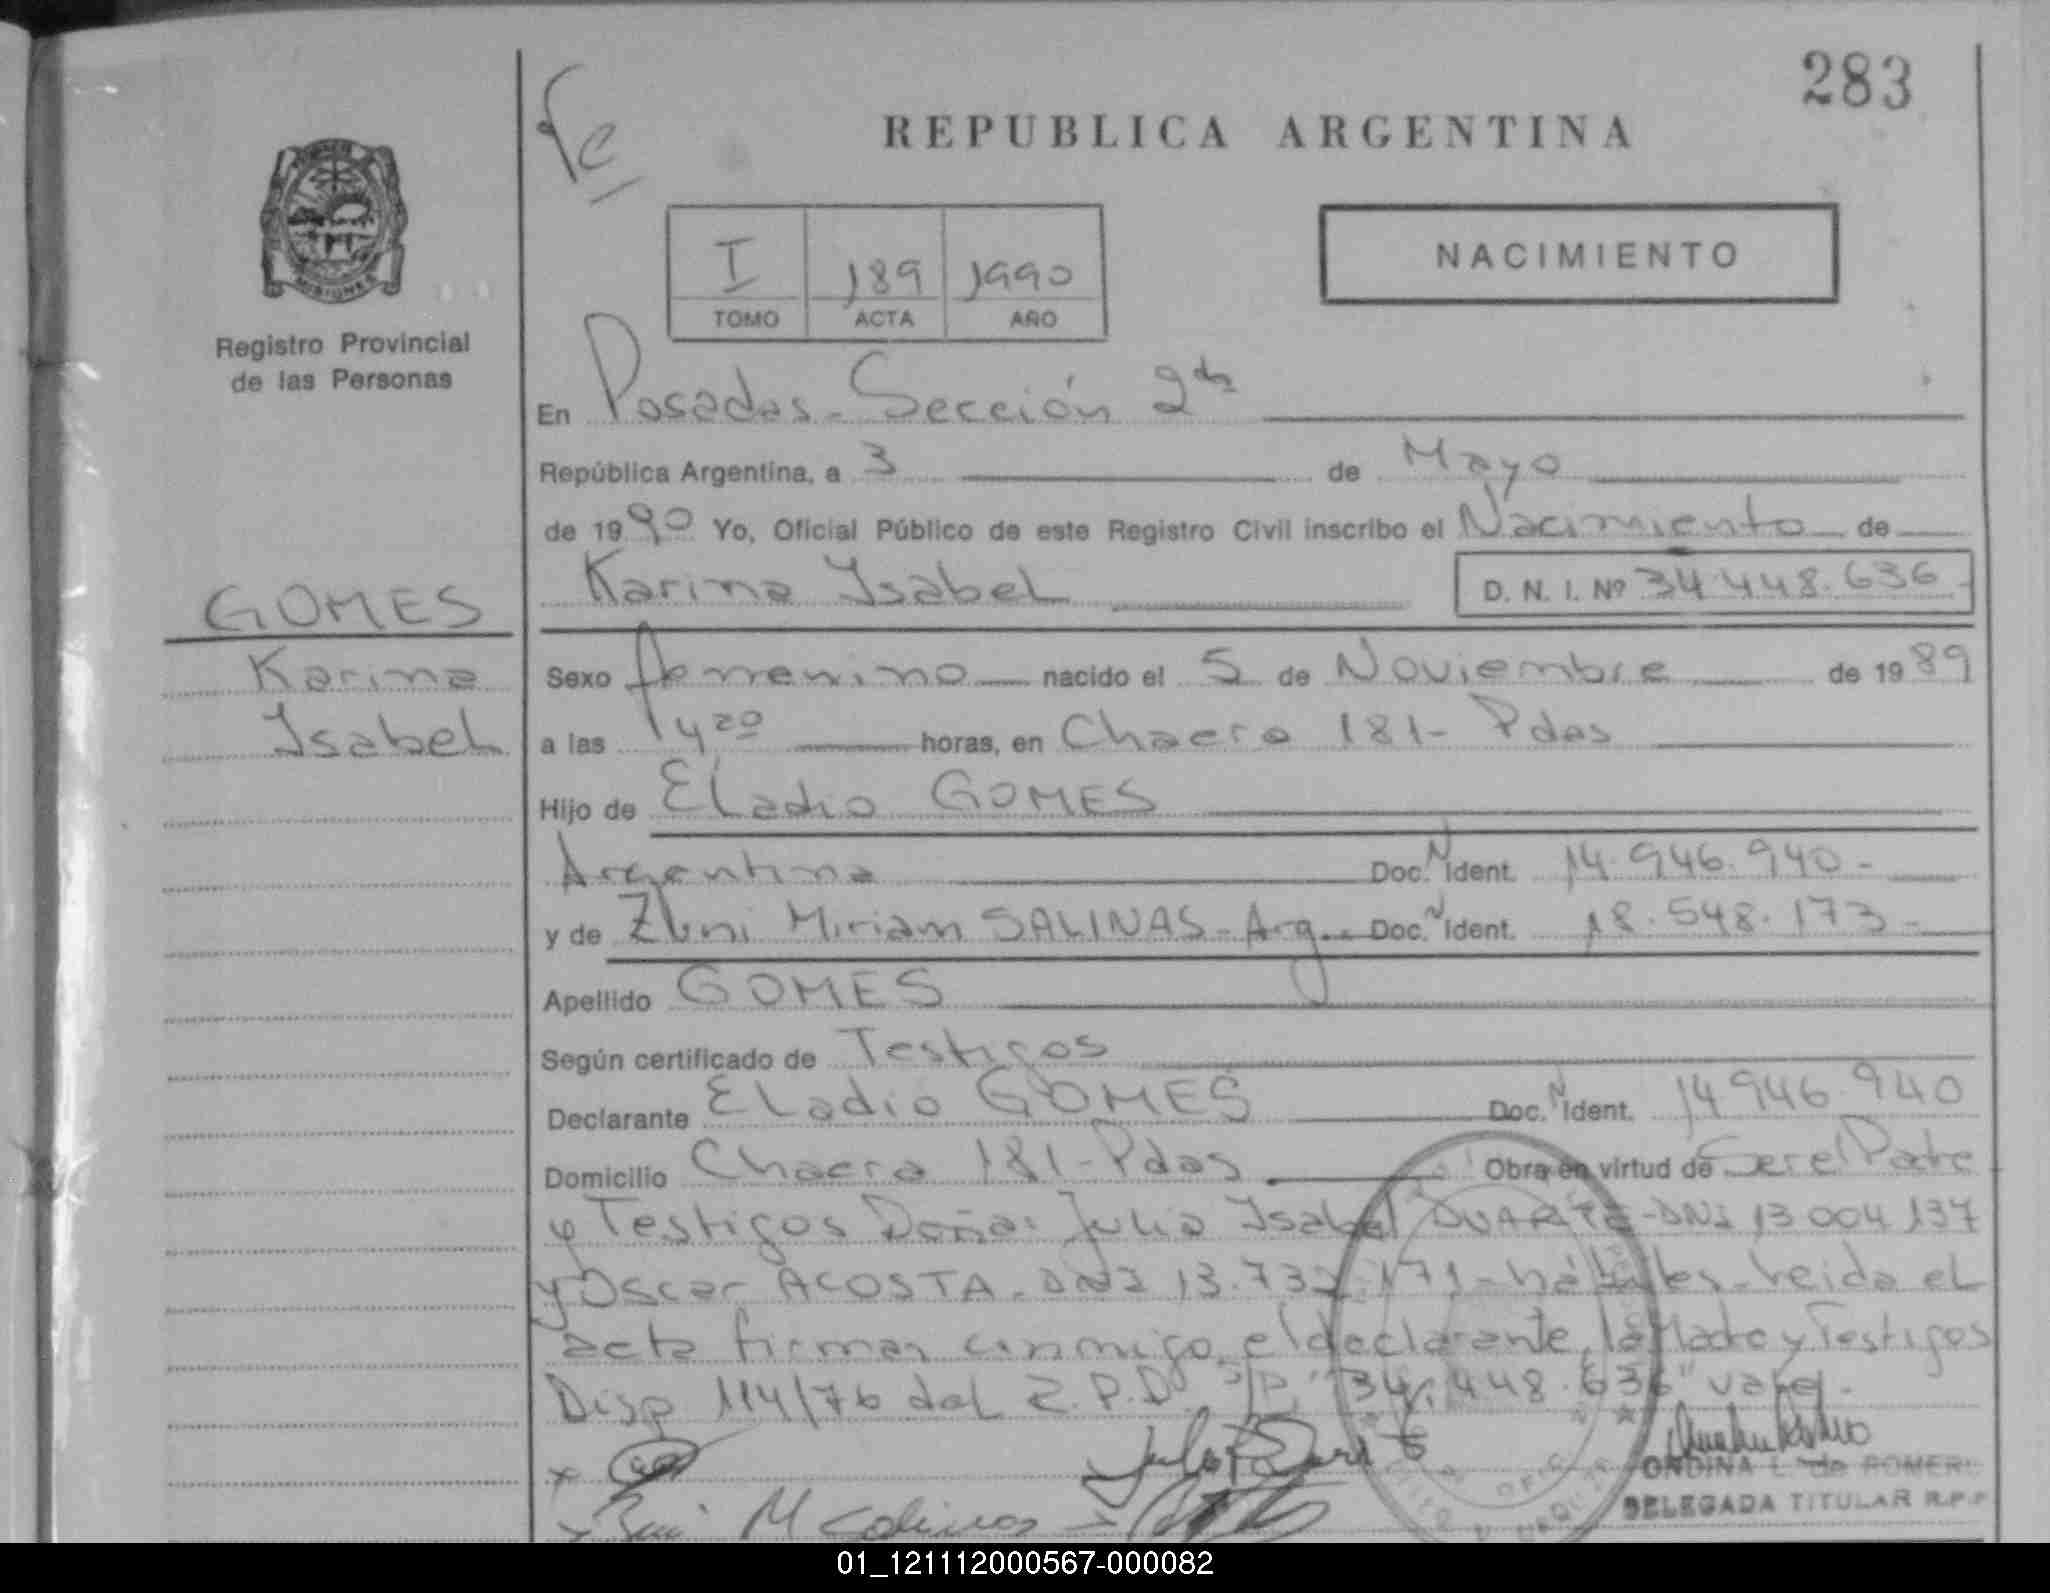 283
REPUBLICA ARGENTINA
NACIMIENTO
I 189 1990
TOMO ACTA AÑO
MISIONES
Registro Provincial
de las Personas
En Posadas - Sección 2da
República Argentina, a 3 de Mayo
de 1990 Yo, Oficial Público de este Registro Civil inscribo el Nacimiento de
Karina Isabel D. N. I. Nº 34.448.636
GOMES
Karina
Isabel
Sexo femenino nacido el 5 de Noviembre de 1989
a las 14 20 horas, en Chacra 181 - Pdas
Hijo de Eladio GOMES
Argentina Doc. N Ident. 14.946.940 -
y de Miriam SALINAS - Arg. Doc. N Ident. 18.548.173 -
Apellido GOMES
Según certificado de Testigos
Declarante Eladio GOMES Doc. N Ident. 14 946.940
Domicilio Chacra 181 - Pdas Obra en virtud de Ser el Padre
y Testigos Doña: Julia Isabel DUARTE - DNI 13 004 137
y Oscar ACOSTA - DNI 13.732.171 - hábiles - leida el
acta firman conmigo el declarante, la Madre y Testigos
Disp 114/76 del R.P.D. S/R "34.448.636" vale -
M Salinas
ONDINA L. de ROMERO
DELEGADA TITULAR R.P.P
01_121112000567-000082